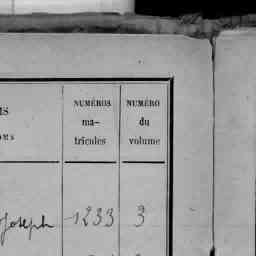 MS
OMS
NUMÉROS
ma-
tricules
NUMÉRO
du
volume
Joseph 1233 3